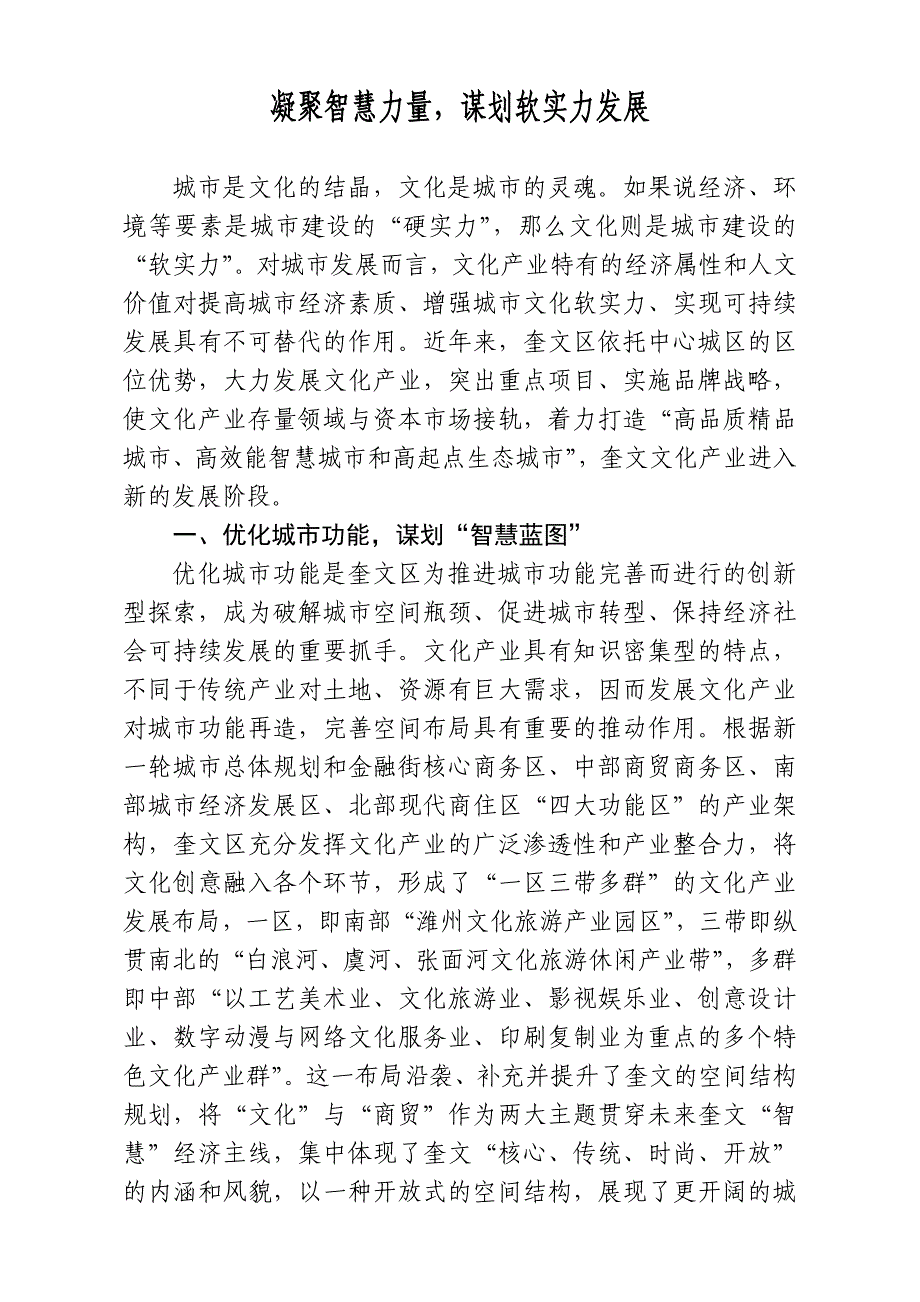 凝聚智慧力量，谋划软实力发展
城市是文化的结晶，文化是城市的灵魂。如果说经济、环
境等要素是城市建设的“硬实力”，那么文化则是城市建设的
“软实力”。对城市发展而言，文化产业特有的经济属性和人文
价值对提高城市经济素质、增强城市文化软实力、实现可持续
发展具有不可替代的作用。近年来，奎文区依托中心城区的区
位优势，大力发展文化产业，突出重点项目、实施品牌战略，
使文化产业存量领域与资本市场接轨，着力打造“高品质精品
城市、高效能智慧城市和高起点生态城市”，奎文文化产业进入
新的发展阶段。
一、优化城市功能，谋划“智慧蓝图”
优化城市功能是奎文区为推进城市功能完善而进行的创新
型探索，成为破解城市空间瓶颈、促进城市转型、保持经济社
会可持续发展的重要抓手。文化产业具有知识密集型的特点，
不同于传统产业对土地、资源有巨大需求，因而发展文化产业
对城市功能再造，完善空间布局具有重要的推动作用。根据新
一轮城市总体规划和金融街核心商务区、中部商贸商务区、南
部城市经济发展区、北部现代商住区“四大功能区”的产业架
构，奎文区充分发挥文化产业的广泛渗透性和产业整合力，将
文化创意融入各个环节，形成了“一区三带多群”的文化产业
发展布局，一区，即南部“潍州文化旅游产业园区”，三带即纵
贯南北的“白浪河、虞河、张面河文化旅游休闲产业带”，多群
即中部“以工艺美术业、文化旅游业、影视娱乐业、创意设计
业、数字动漫与网络文化服务业、印刷复制业为重点的多个特
色文化产业群”。这一布局沿袭、补充并提升了奎文的空间结构
规划，将“文化”与“商贸”作为两大主题贯穿未来奎文“智
慧”经济主线，集中体现了奎文“核心、传统、时尚、开放”
的内涵和风貌，以一种开放式的空间结构，展现了更开阔的城